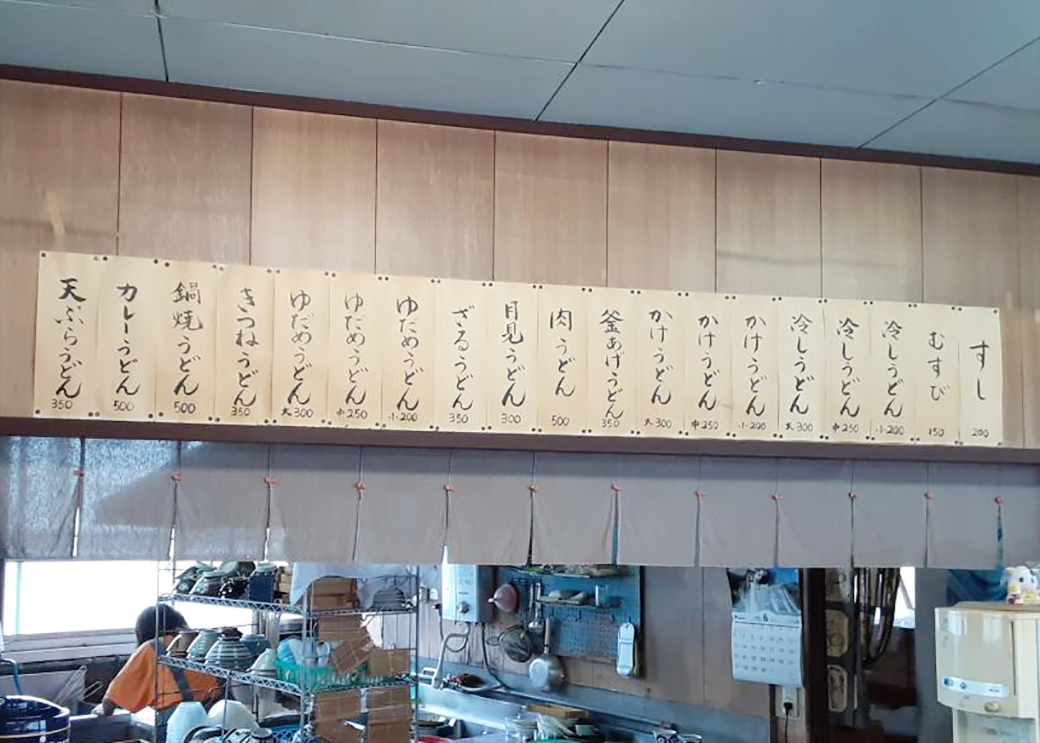 すし
200
むすび
150
冷しうどん
小200
冷しうどん
中250
冷しうどん
大300
かけうどん
小200
かけうどん
中250
かけうどん
大300
釜あげうどん
350
肉うどん
500
月見うどん
300
ざるうどん
350
ゆだめうどん
小200
ゆだめうどん
中250
ゆだめうどん
大300
きつねうどん
350
鍋焼うどん
500
カレーうどん
500
天ぷらうどん
350